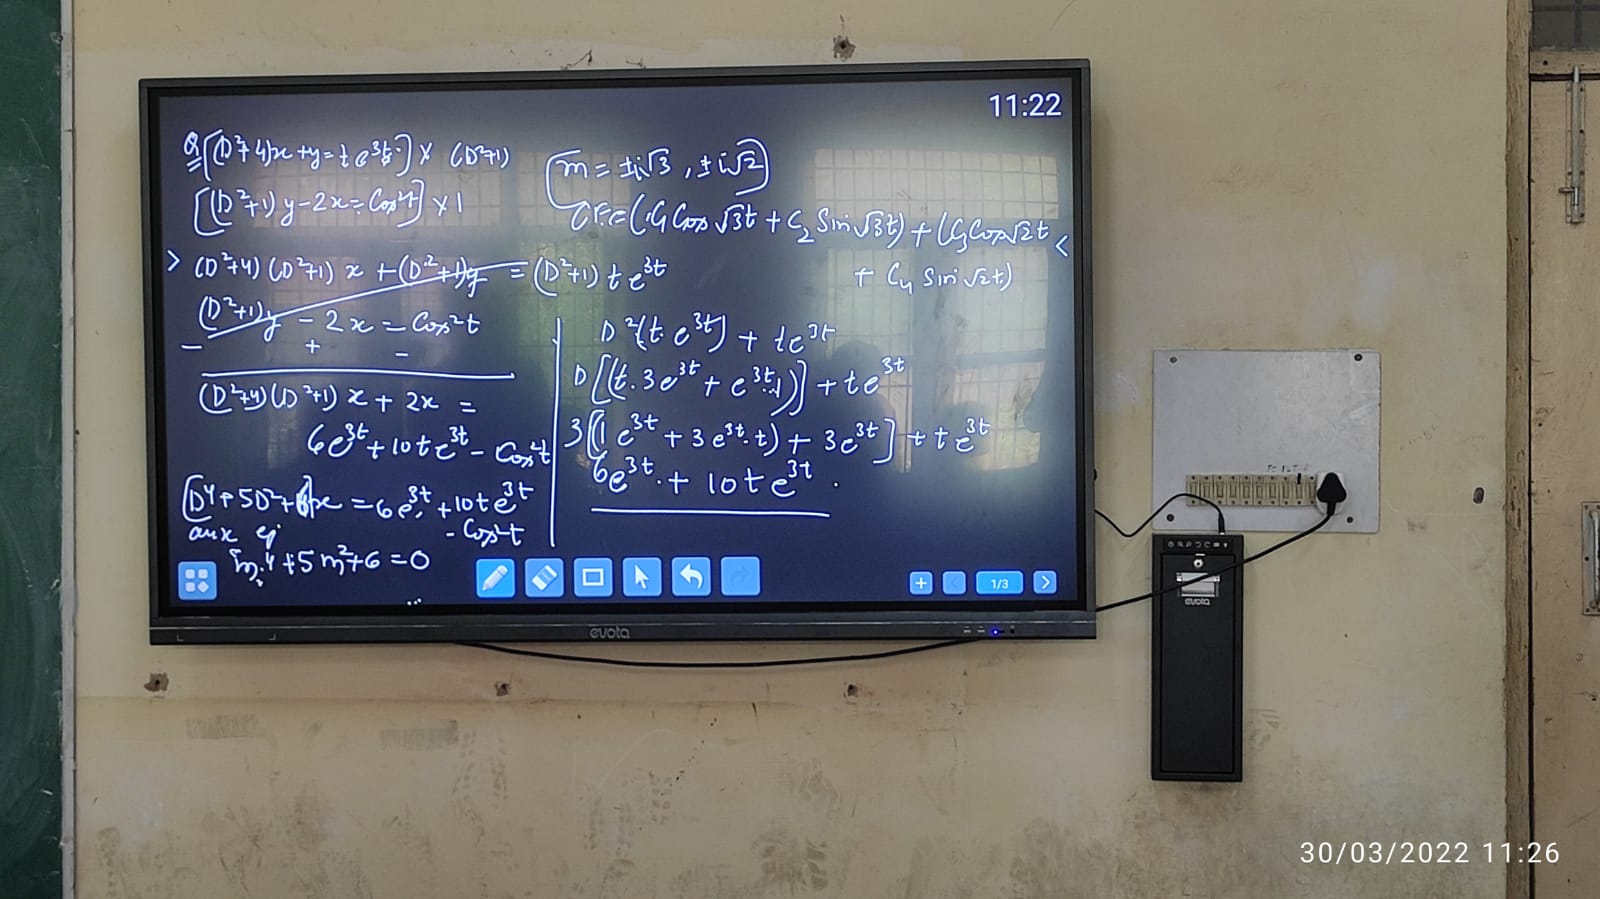 11:22
Q [(D²+4)x+y=te^3t] × (D²+1)
[(D²+1)y-2x=Cos²t] × 1
(D²+4)(D²+1)x+(D²+1)y = (D²+1)te^3t
(D²+1)y - 2x = Cos²t
- + -
(D²+4)(D²+1)x + 2x =
6e^3t+10te^3t - Cos²t
[D⁴+5D²+6]x = 6e^3t+10te^3t
- Cos²t
aux eq
m⁴+5m²+6=0
m = ±i√3, ±i√2
CF=(C₁Cos√3t + C₂Sin√3t) + (C₃Cos√2t
+ C₄ Sin√2t)
D²(t.e^3t) + te^3t
D[(t.3e^3t + e^3t.1)] + te^3t
3[(1e^3t + 3e^3t.t) + 3e^3t] + te^3t
6e^3t + 10te^3t.
1/3
evota
evota
30/03/2022 11:26